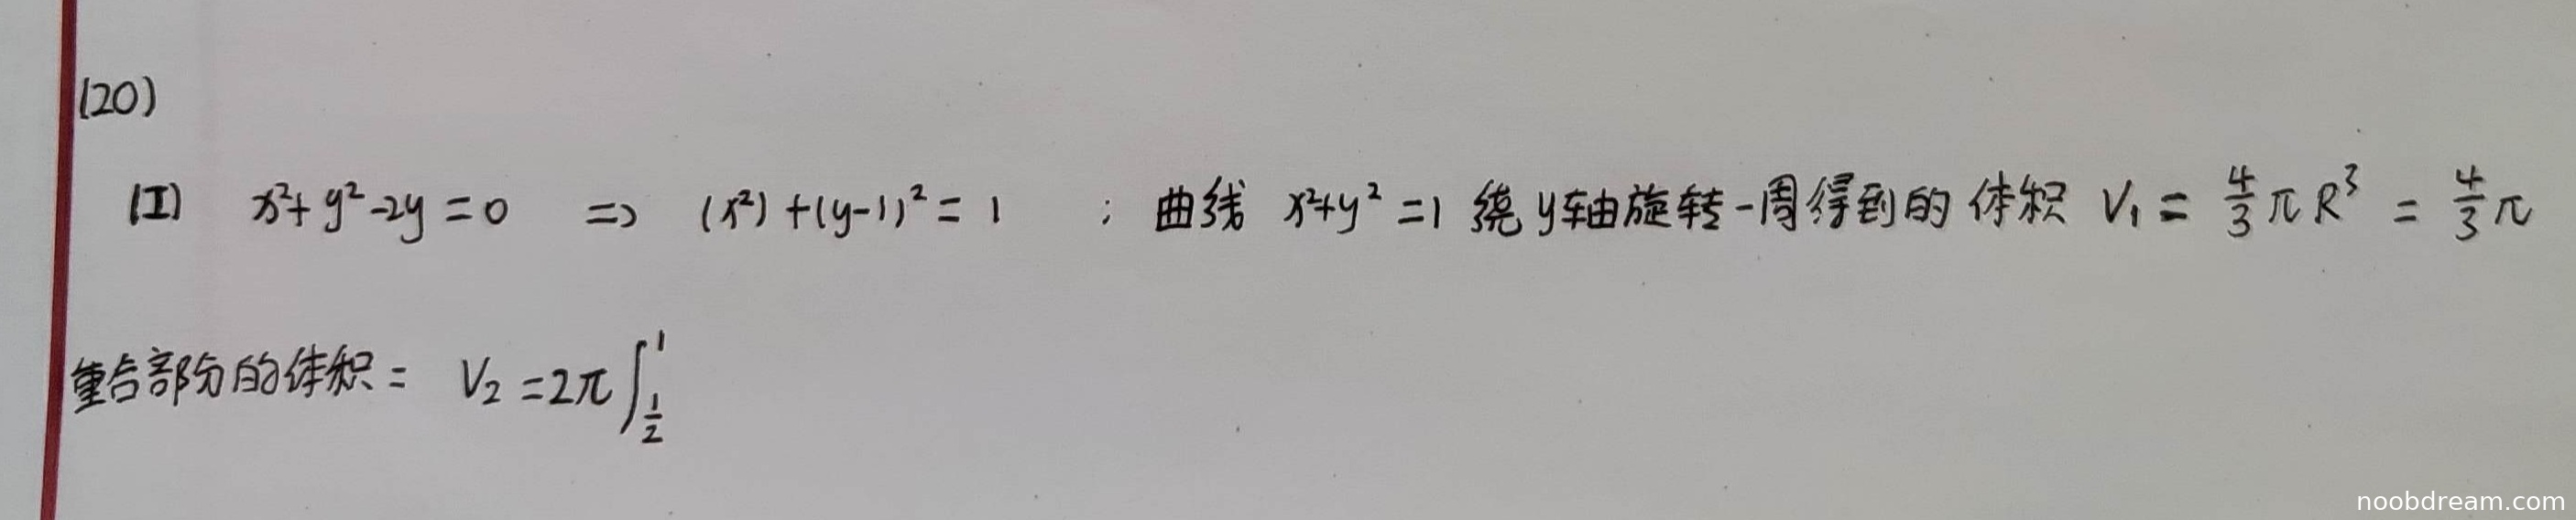 (20)
(I) x²+y²-2y=0 => (x²)+(y-1)²=1 ; 曲线 x²+y²=1 绕y轴旋转一周得到的体积 V₁= 4/3 πR³ = 4/3 π
重合部分的体积= V₂=2π∫_{1/2}^{1}
noobdream.com